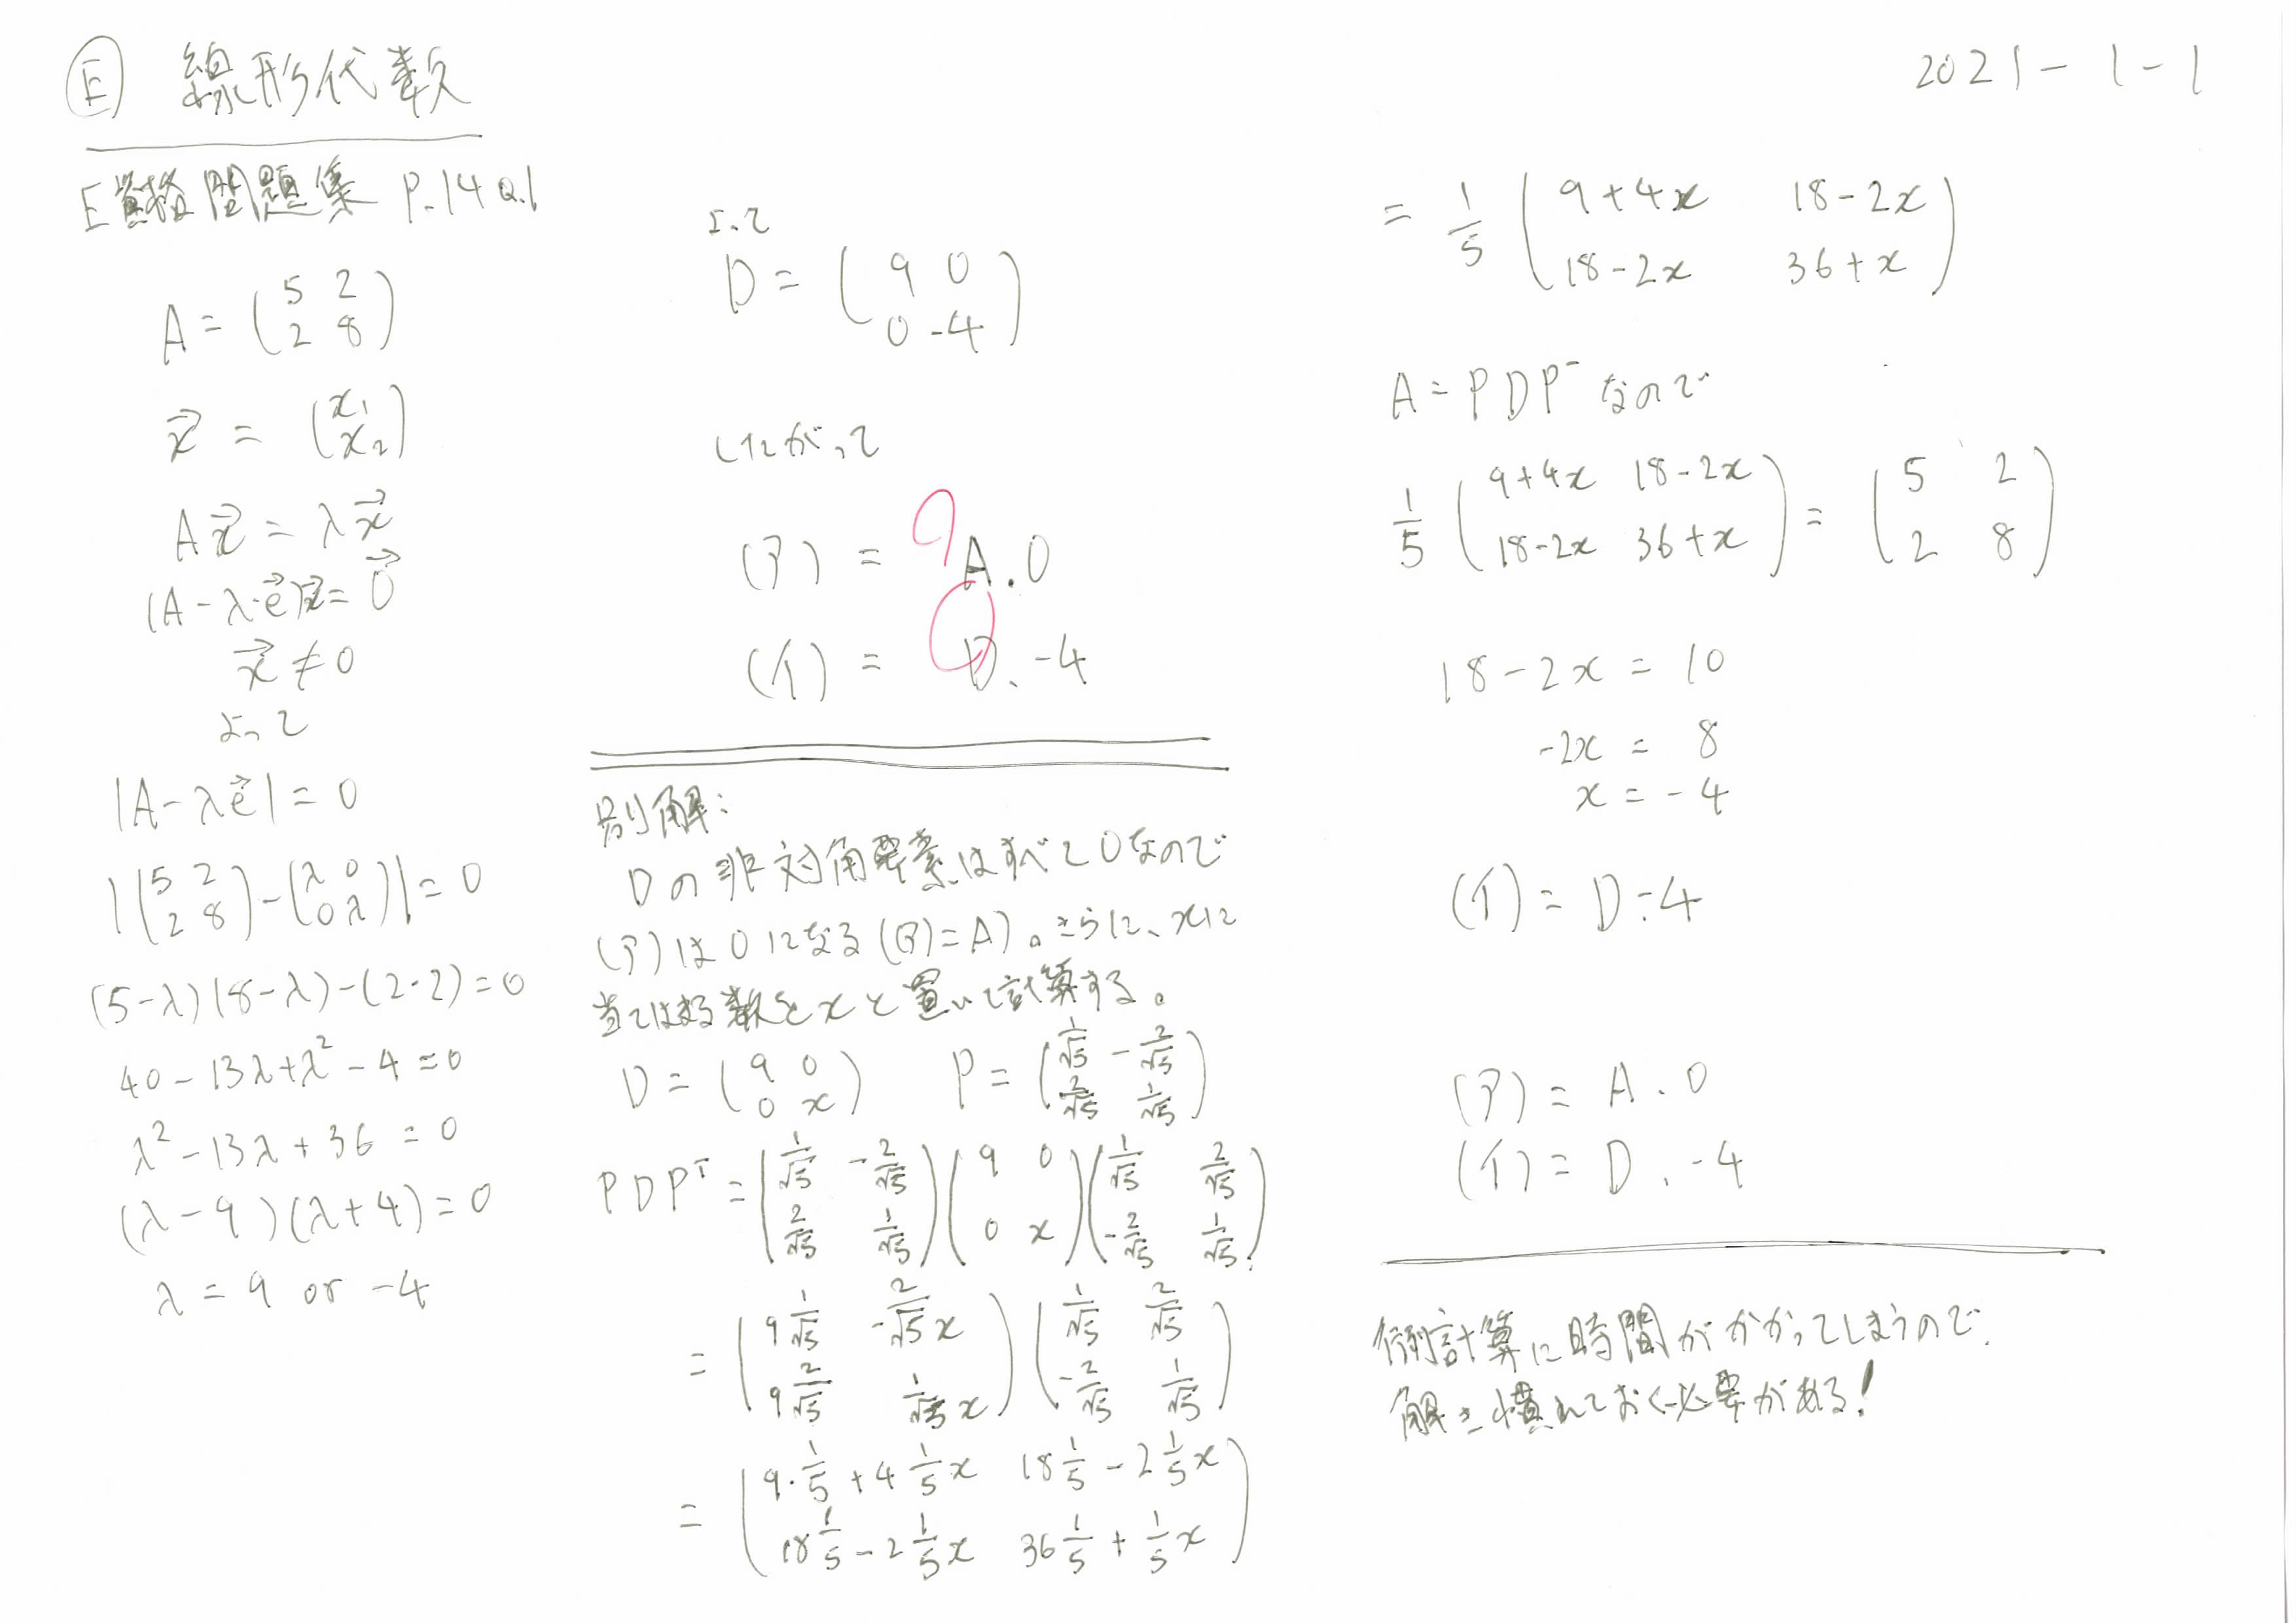 Ⓔ 線形代数
2021-1-1
E資格問題集 P.14 Q.1
A = (5 2
2 8)
x⃗ = (x₁
x₂)
Ax⃗ = λx⃗
(A - λ·e⃗)x⃗ = 0⃗
x⃗ ≠ 0
よって
|A - λe⃗| = 0
|(5 2
2 8) - (λ 0
0 λ)| = 0
(5-λ)(8-λ)-(2·2)=0
40 - 13λ + λ² - 4 = 0
λ² - 13λ + 36 = 0
(λ - 9)(λ + 4) = 0
λ = 9 or -4
よって
D = (9 0
0 -4)
したがって
(ア) = A. 0
(イ) = D. -4
別解:
Dの非対角要素はすべて0なので
(ア)は0になる((ア)=A)。さらに、xに
当てはまる数をxと置いて計算する。
D = (9 0
0 x) P = (1/√5 -2/√5
2/√5 1/√5)
PDPᵀ = (1/√5 -2/√5
2/√5 1/√5)(9 0
0 x)(1/√5 2/√5
-2/√5 1/√5)
= (9 1/√5 -2/√5 x
9 2/√5 1/√5 x)(1/√5 2/√5
-2/√5 1/√5)
= (9·1/5 + 4 1/5 x 18 1/5 - 2 1/5 x
18 1/5 - 2 1/5 x 36 1/5 + 1/5 x)
= 1/5 (9+4x 18-2x
18-2x 36+x)
A = PDP⁻ なので
1/5 (9+4x 18-2x
18-2x 36+x) = (5 2
2 8)
18 - 2x = 10
-2x = 8
x = -4
(イ) = D:4
(ア) = A. 0
(イ) = D. -4
計算に時間がかかってしまうので、
解き慣れておく必要がある!